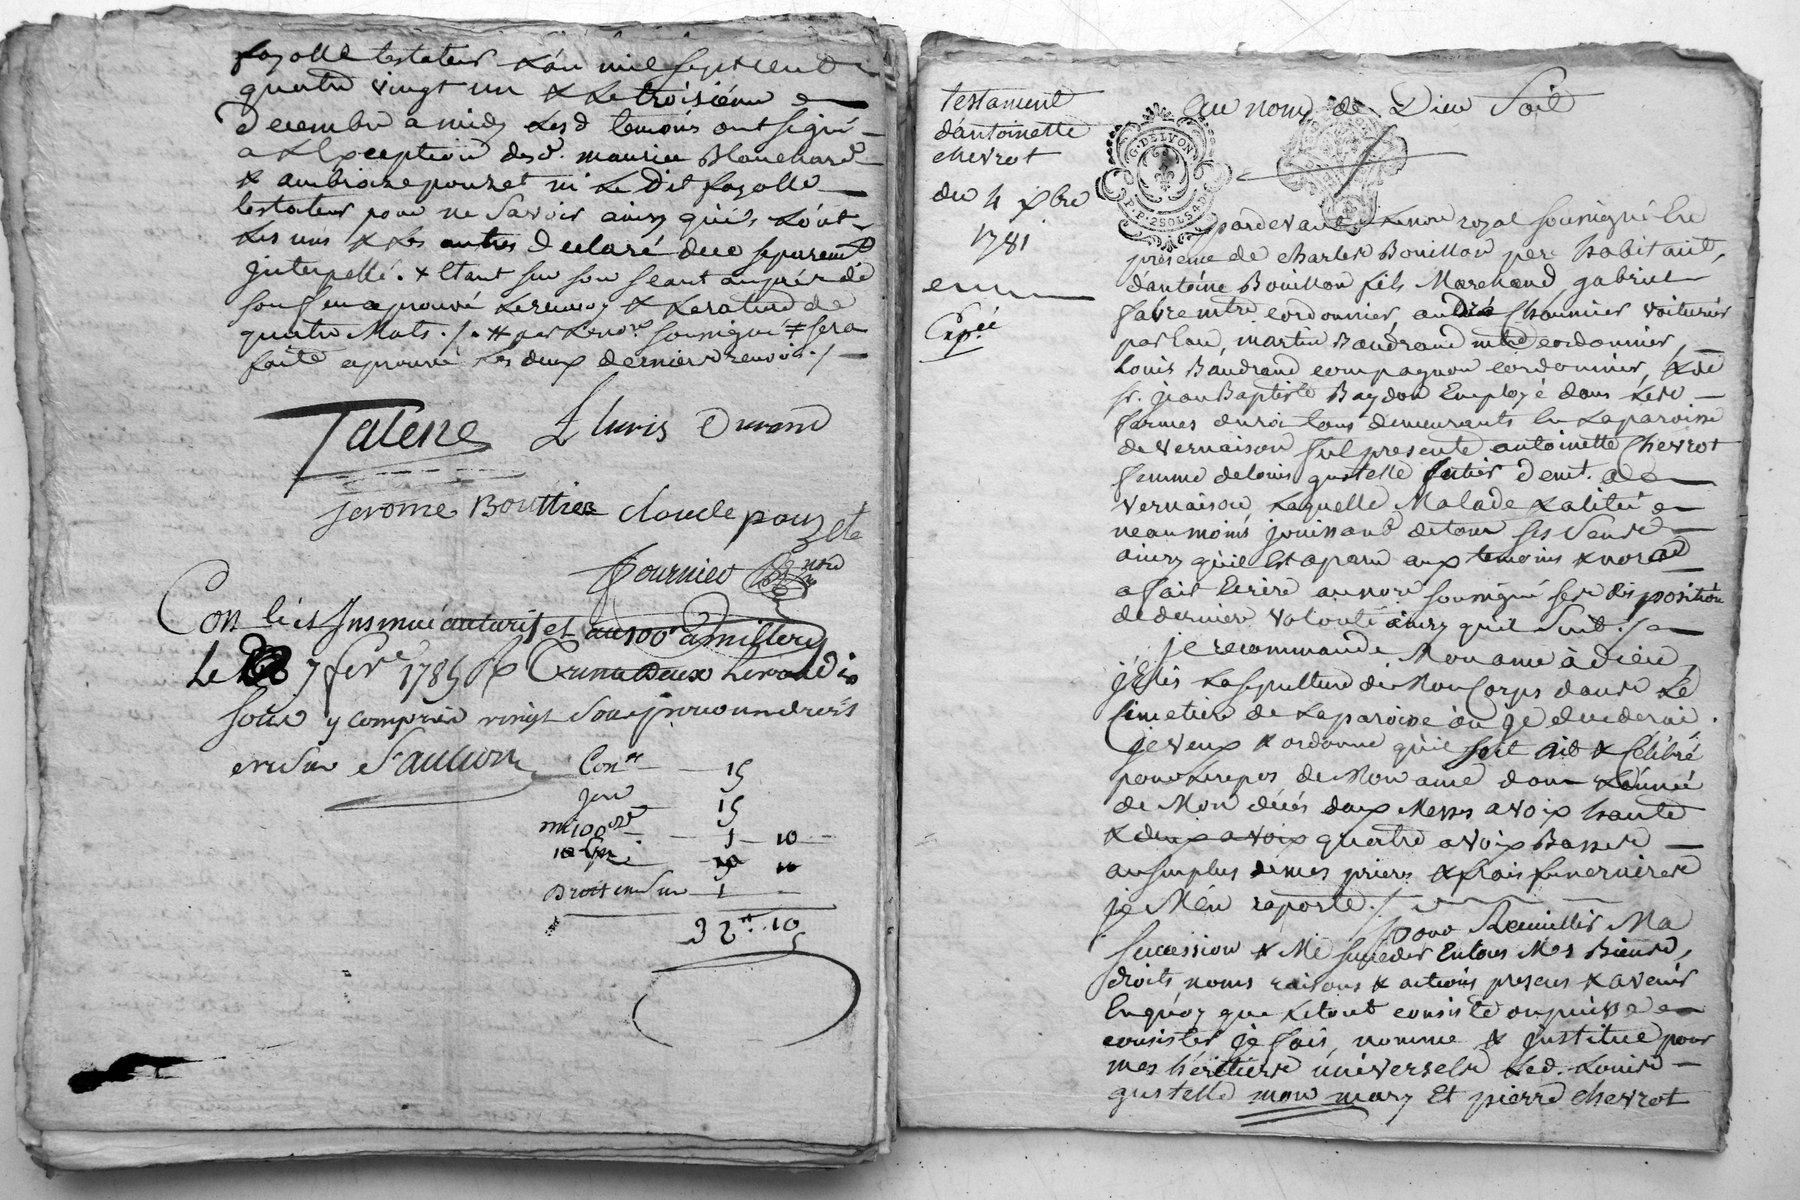 fayolle testateur l'an mil sept cent
quatre vingt un & le troisième
décembre a midy lesd temoins ont signé
a l'exception desd. maurice Blanchard
& ambroise pouzet ni le dit fayolle
testateur pour ne savoir ainsy qu'ils l'ont
les uns & les autres declaré de ce separement
interpellé. & étant sur son seant auprés de
son feu aprouvé le renvoy & la rature de
quatre Mots ./. & par le no.re soussigné ≠ sera
faite aprouvé les deux derniers renvois ./
Talene L Huris Durand
jerome Bouttier claude pouzet
fournier no.re
Con.lé et Insinué au tarif et au 100e a millery
Le 7 fevr 1785 R Trente deux livres dix
sous y compris vingt sous pour un droit
en sus Saunion
Con.le 15
15
mi 100e 1 10
Droit en sus 1
32 tt 10 s
testament
d'antoinette
chevrot
du 4 xbre
1781
Exp.ée
Au nom de Dieu Soit
G. DELYON
P.P. 2 SOLS 4 D
pardevant le no.re royal soussigné En
présence de charles Bouillon pere habitant,
d'antoine Bouillon fils Marchand, gabriel
favre mtre cordonnier, andré Chaumier voiturier
par Eau, martin Baudrand mtre cordonnier,
Louis Baudrand compagnon cordonnier, & de
sr. jean Baptiste Baydon Employé dans les
fermes du roi tous demeurants En la paroisse
de vernaison fut presente antoinette chevrot
femme de Louis gustelle demt. a
vernaison, Laquelle Malade & alitée
neanmoins jouissant de tous ses Sens
ainsy qu'il Est aparu aux temoins & no.re
a fait Ecrire au no.re soussigné ses disposition
de derniere volonté ainsy qu'il Suit ./.
je recommande Mon ame à dieu,
j'Elis La sepulture de Mon Corps dans Le
Cimetiere de La paroisse ou je decederai.
je veux & ordonne qu'il soit dit & Célébré
pour le repos de Mon ame dans L'année
de Mon décés deux Messes a voix haute
& deux a voix quatre a voix Basse
au surplus de mes prieres & frais funeraires
je M'en raporte ./.
pour Recueillir Ma
succession & Me succeder En tous Mes Biens,
droits, noms raisons & actions presens & avenir
En quoy que le tout consiste ou puisse
consister je fais, nomme & institue pour
mes héritiers universels led. Louis
gustelle mon mary Et pierre chevrot